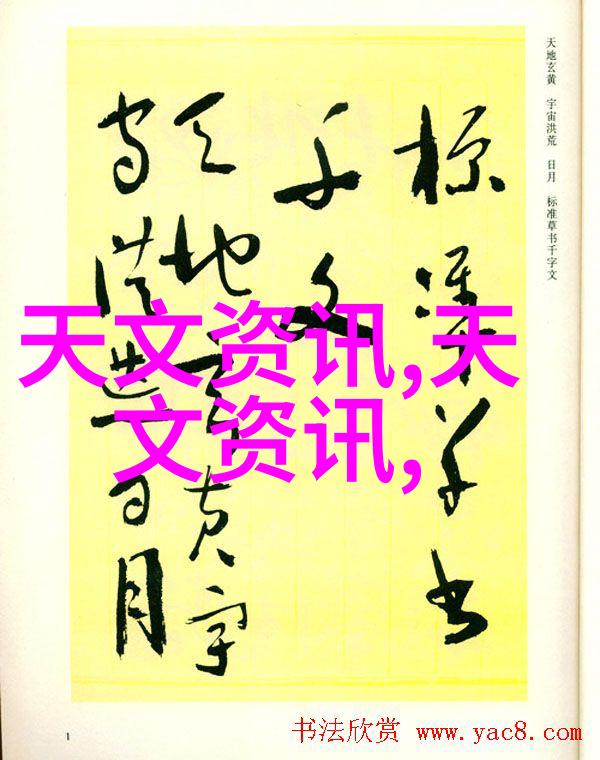 天地玄黄 宇宙洪荒 日月 标准草书千字文
标准草书
千文
天地玄黄宇
宙洪荒日月
天文资讯,天
文资讯,
1
书法欣赏 www.yac8.com